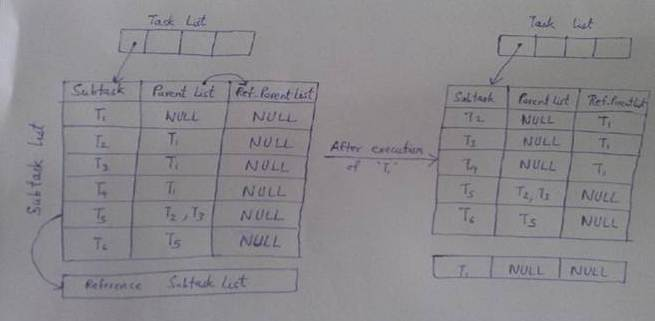 Task List
Subtask Parent List Ref. Parent List
T1 NULL NULL
T2 T1 NULL
T3 T1 NULL
T4 T1 NULL
T5 T2, T3 NULL
T6 T5 NULL
Subtask List
Reference Subtask List
After execution
of "T1"
Task List
Subtask Parent List Ref. Parent List
T2 NULL T1
T3 NULL T1
T4 NULL T1
T5 T2, T3 NULL
T6 T5 NULL
T1 NULL NULL